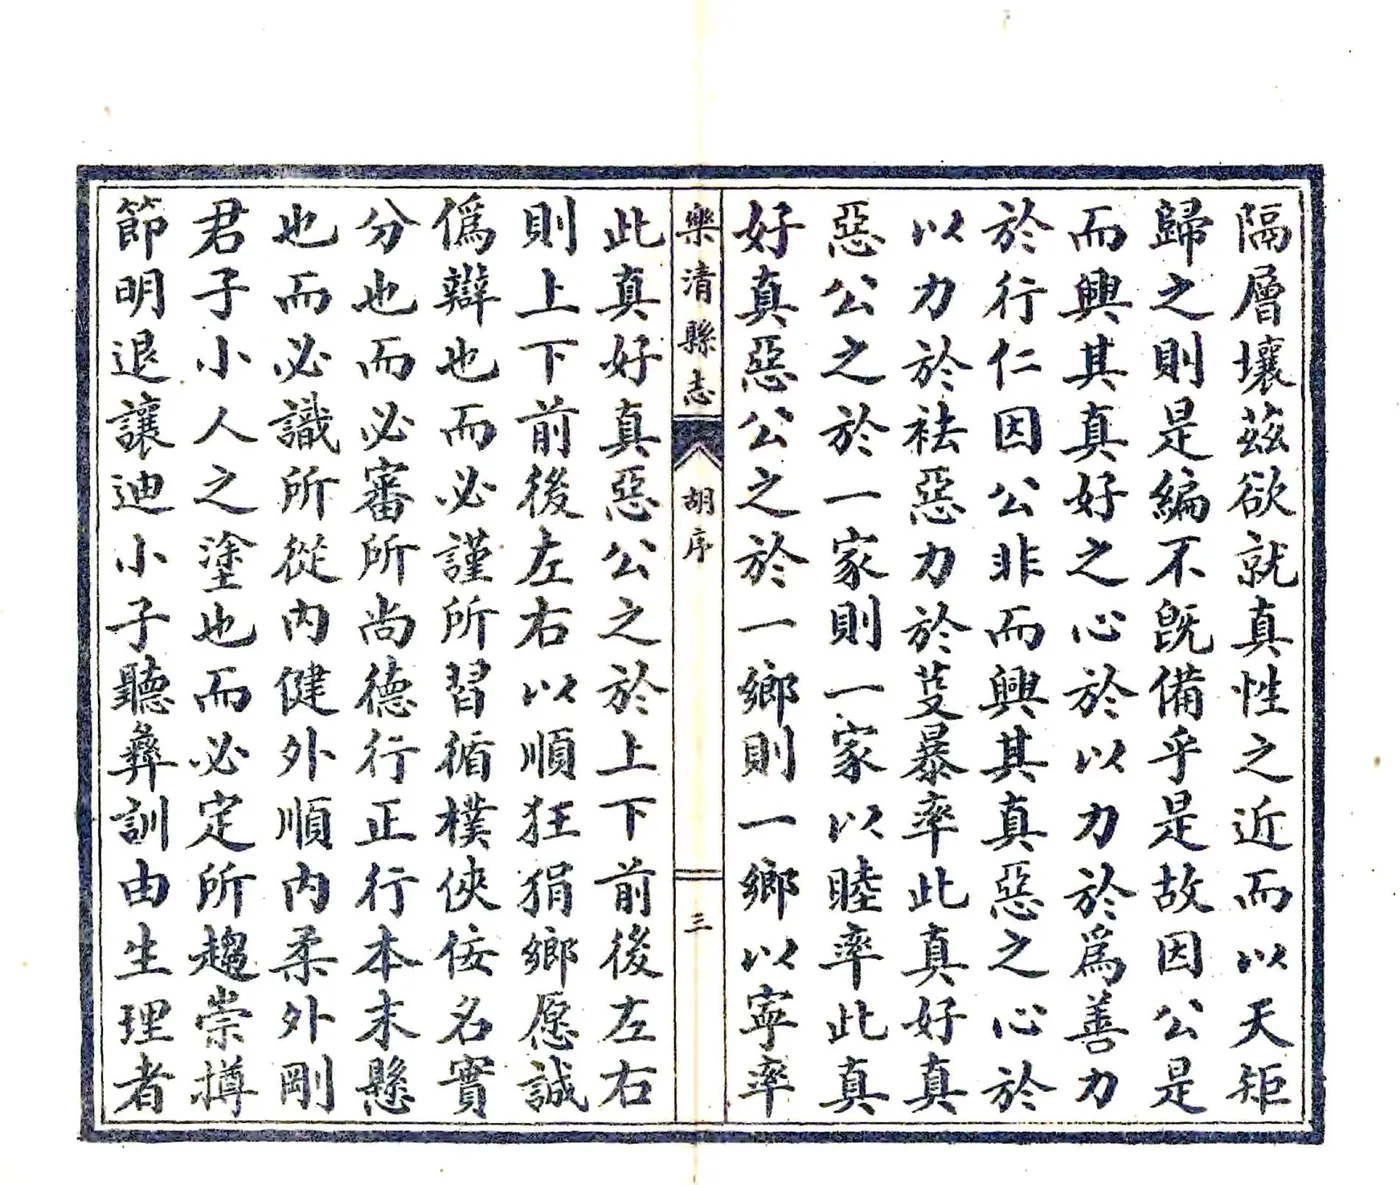 隔層壤茲欲就真性之近而以天矩
歸之則是編不既備乎是故因公是
而興其真好之心於以力於為善力
於行仁因公非而興其真惡之心於
以力於祛惡力於芟暴率此真好真
惡公之於一家則一家以睦率此真
好真惡公之於一鄉則一鄉以寧率
樂清縣志
胡序
三
此真好真惡公之於上下前後左右
則上下前後左右以順狂狷鄉愿誠
僞辯也而必謹所習循樸俠佞名實
分也而必審所尚德行正行本末懸
也而必識所從內健外順內柔外剛
君子小人之塗也而必定所趨崇撙
節明退讓迪小子聽彝訓由生理者